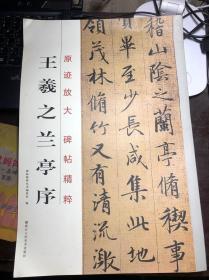 稽山陰之蘭亭脩禊事
賢畢至少長咸集此地
領茂林脩竹又有清流激
原迹放大 碑帖精粹
王羲之兰亭序